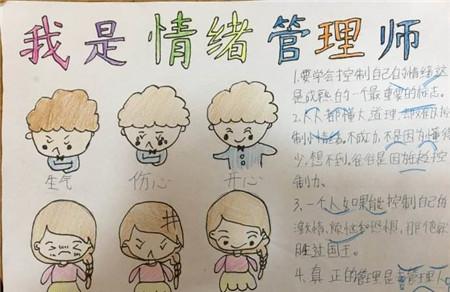 我是情绪管理师
1.要学会控制自己的情绪这
是成熟的一个最重要的标志。
2.人人都懂大道理,却难以控
制小情绪。不成功不是因为懂得
少,想不到,恰恰是因为缺控
制力。
3.一个人如果能控制自己的
激情、
和恐惧,那他就
胜过国王。
4.真正的管理是
管理人
生气
伤心
开心